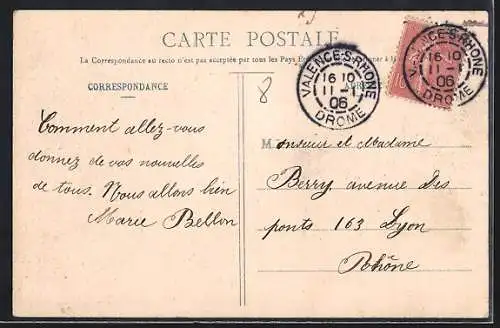 CARTE POSTALE
La Correspondance au recto n'est pas acceptée par tous les Pays
CORRESPONDANCE
8
VALENCE-S-RHONE
16 10
11 -1
06
DROME
VALENCE-S-RHONE
16 10
11 -1
06
DROME
Comment allez-vous
donnez de vos nouvelles
de tous. Nous allons bien
Marie Bellon
Monsieur et Madame
Berry avenue des
ponts 163 Lyon
Rhône